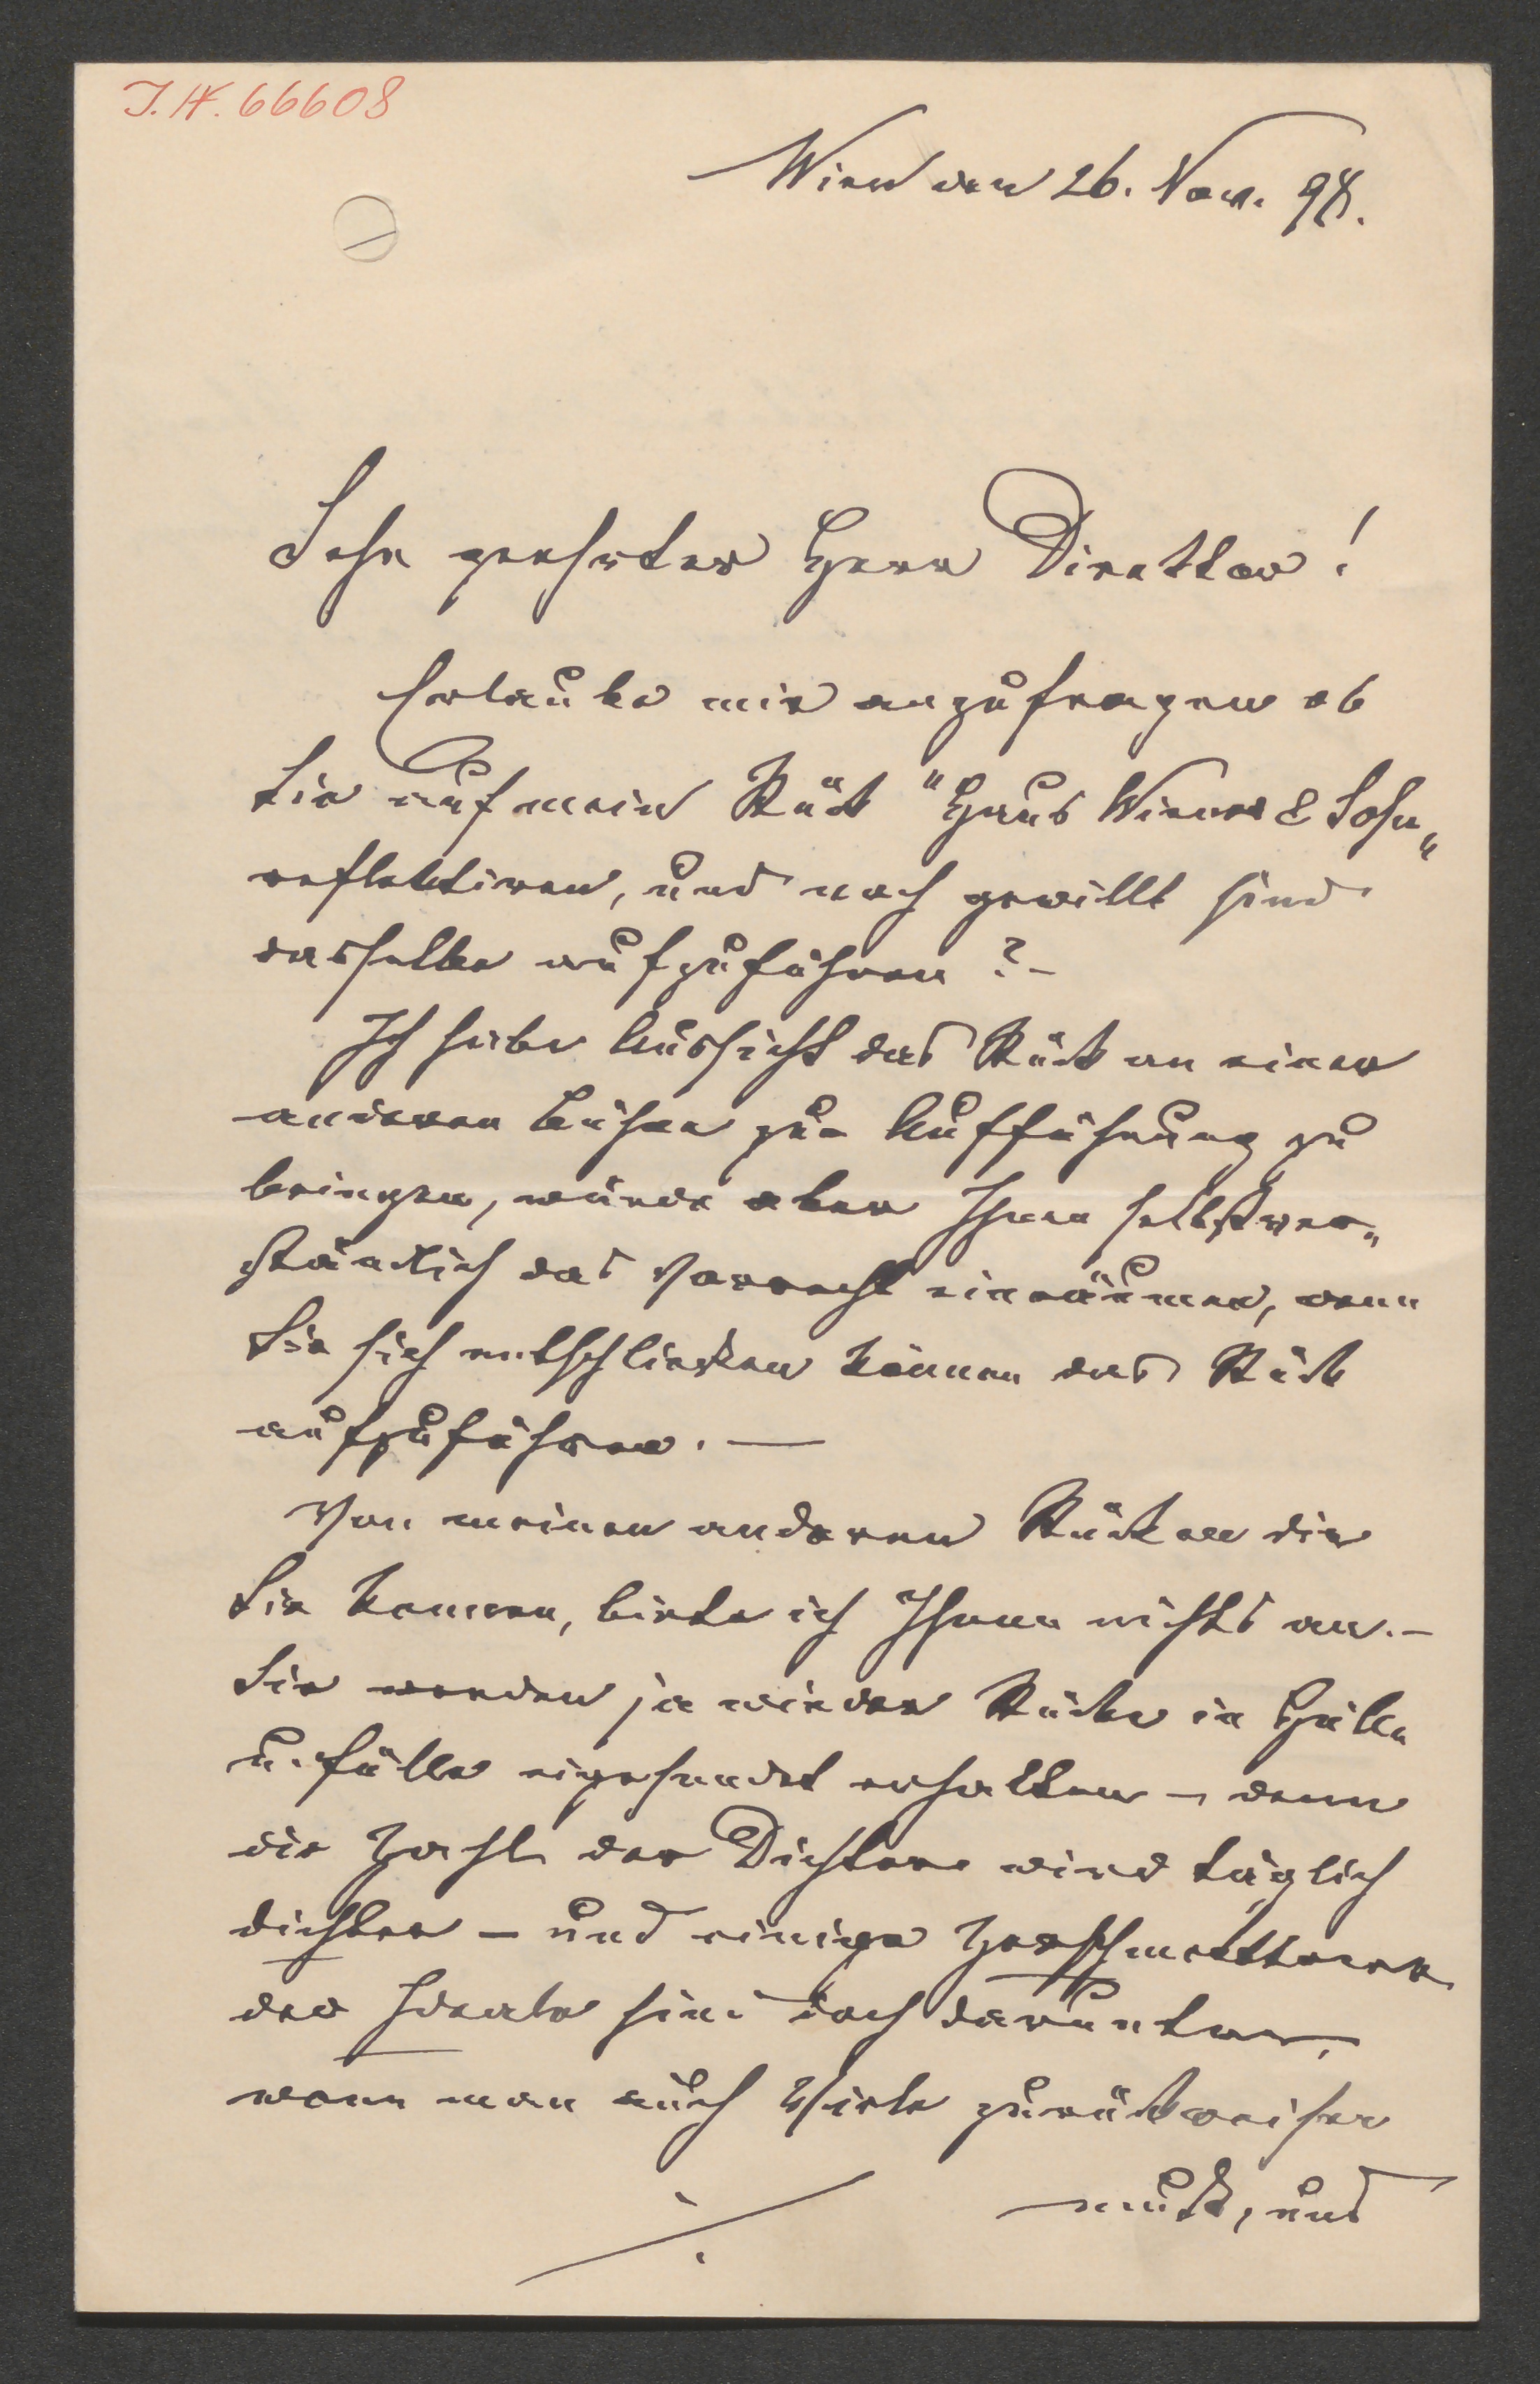 J. N. 66608
Wien den 26. Nov. 98.
Sehr geehrter Herr Direktor!
Erlaube mir anzufragen ob
Sie auf mein Stück "Haus Wiener & Sohn"
reflektiren, und noch gewillt sind
dasselbe aufzuführen? –
Ich habe Aussicht das Stück an einer
anderen Bühne zur Aufführung zu
bringen, würde aber Ihnen selbstver„
ständlich das Vorrecht einräumen, wenn
Sie sich entschließen können das Stück
aufzuführen. —
Von meinen anderen Stücken die
Sie kennen, biete ich Ihnen nichts an. –
Sie werden ja wieder Stücke in Hülle
u. Fülle eigesendet erhalten – denn
die Zahl der Dichter wird täglich
dichter – und einige Herschmetterer
der Ideale sind doch darunter,
wenn man auch Viele zurückweisen
muß, und
./.